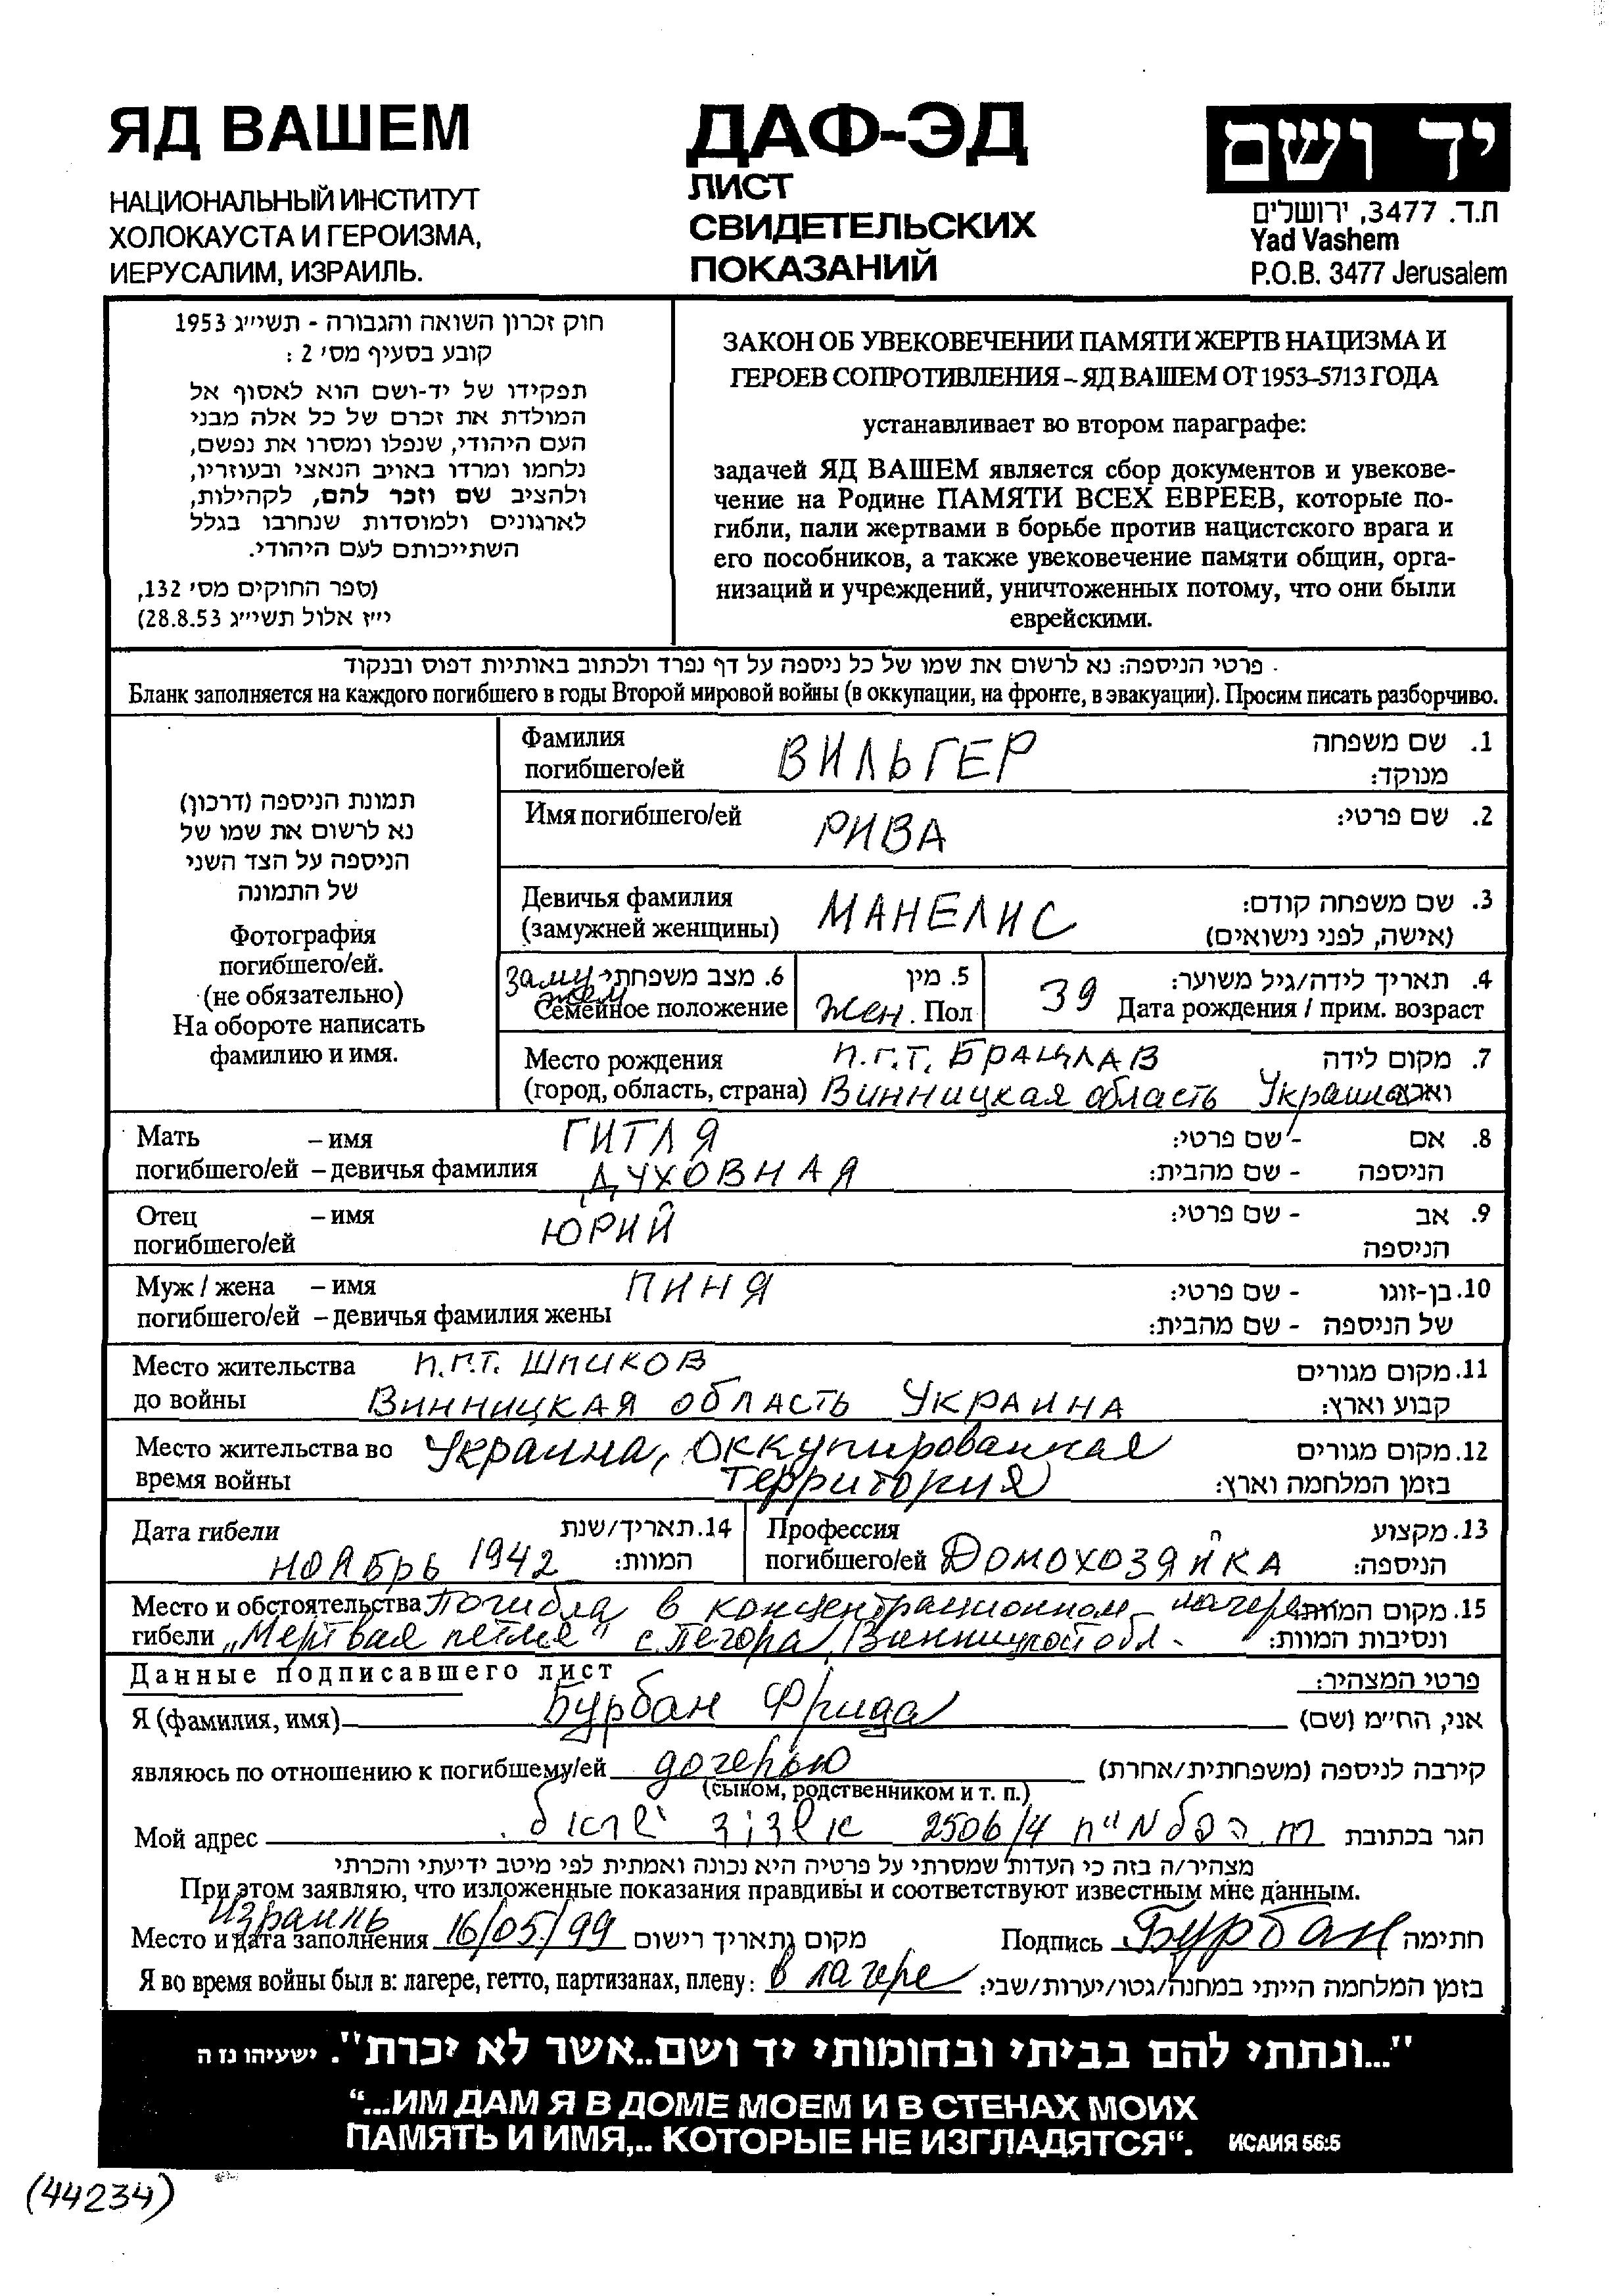 ЯД ВАШЕМ
НАЦИОНАЛЬНЫЙ ИНСТИТУТ
ХОЛОКАУСТА И ГЕРОИЗМА,
ИЕРУСАЛИМ, ИЗРАИЛЬ.
ДАФ-ЭД
ЛИСТ
СВИДЕТЕЛЬСКИХ
ПОКАЗАНИЙ
יד ושם
ת.ד. 3477, ירושלים
Yad Vashem
P.O.B. 3477 Jerusalem
חוק זכרון השואה והגבורה - תשי״ג 1953
קובע בסעיף מס׳ 2 :
תפקידו של יד-ושם הוא לאסוף אל
המולדת את זכרם של כל אלה מבני
העם היהודי, שנפלו ומסרו את נפשם,
נלחמו ומרדו באויב הנאצי ובעוזריו,
ולהציב שם וזכר להם, לקהילות,
לארגונים ולמוסדות שנחרבו בגלל
השתייכותם לעם היהודי.
(ספר החוקים מס׳ 132,
י״ז אלול תשי״ג 28.8.53)
ЗАКОН ОБ УВЕКОВЕЧЕНИИ ПАМЯТИ ЖЕРТВ НАЦИЗМА И
ГЕРОЕВ СОПРОТИВЛЕНИЯ – ЯД ВАШЕМ ОТ 1953–5713 ГОДА
устанавливает во втором параграфе:
задачей ЯД ВАШЕМ является сбор документов и увекове-
чение на Родине ПАМЯТИ ВСЕХ ЕВРЕЕВ, которые по-
гибли, пали жертвами в борьбе против нацистского врага и
его пособников, а также увековечение памяти общин, орга-
низаций и учреждений, уничтоженных потому, что они были
еврейскими.
פרטי הניספה: נא לרשום את שמו של כל ניספה על דף נפרד ולכתוב באותיות דפוס ובנקוד
Бланк заполняется на каждого погибшего в годы Второй мировой войны (в оккупации, на фронте, в эвакуации). Просим писать разборчиво.
תמונת הניספה (דרכון)
נא לרשום את שמו של
הניספה על הצד השני
של התמונה
Фотография
погибшего/ей.
(не обязательно)
На обороте написать
фамилию и имя.
Фамилия ВИЛЬГЕР 1. שם משפחה
погибшего/ей מנוקד:
Имя погибшего/ей РИВА 2. שם פרטי:
Девичья фамилия МАНЕЛИС 3. שם משפחה קודם:
(замужней женщины) (אישה, לפני נישואים)
Заму- 6. מצב משפחתי 5. מין 39 4. תאריך לידה/גיל משוער:
жем Семейное положение жен. Пол Дата рождения / прим. возраст
Место рождения п.г.т. БРАЦЛАВ 7. מקום לידה
(город, область, страна) Винницкая область Украина וארץ
Мать – имя ГИТЛЯ - שם פרטי: 8. אם
погибшего/ей – девичья фамилия ДУХОВНАЯ - שם מהבית: הניספה
Отец – имя ЮРИЙ - שם פרטי: 9. אב
погибшего/ей הניספה
Муж / жена – имя ПИНЯ - שם פרטי: 10. בן-זוגו
погибшего/ей – девичья фамилия жены - שם מהבית: של הניספה
Место жительства п.г.т. ШПИКОВ 11. מקום מגורים
до войны Винницкая область Украина קבוע וארץ:
Место жительства во Украина, оккупированная 12. מקום מגורים
время войны территория בזמן המלחמה וארץ:
Дата гибели 14. תאריך/שנת Профессия 13. מקצוע
НОЯБРЬ 1942 המוות: погибшего/ей Домохозяйка הניספה:
Место и обстоятельства Погибла в концентрационном лагере 15. מקום המוות
гибели „Мертвая петля" с. Печора, Винницкой обл. ונסיבות המוות:
Данные подписавшего лист פרטי המצהיר:
Я (фамилия, имя) Бурбан Фрида אני, הח״מ (שם)
являюсь по отношению к погибшему/ей дочерью קירבה לניספה (משפחתית/אחרת)
(сыном, родственником и т. п.)
Мой адрес רח. הפלמ״ח 2506/4 אשדוד ישראל הגר בכתובת
מצהיר/ה בזה כי העדות שמסרתי על פרטיה היא נכונה ואמתית לפי מיטב ידיעתי והכרתי
При этом заявляю, что изложенные показания правдивы и соответствуют известным мне данным.
Израиль
Место и дата заполнения 16/05/99 מקום ותאריך רישום Подпись Бурбан חתימה
Я во время войны был в: лагере, гетто, партизанах, плену: в лагере בזמן המלחמה הייתי במחנה/גטו/יערות/שבי:
"...ונתתי להם בביתי ובחומותי יד ושם..אשר לא יכרת". ישעיהו נז ה
“...ИМ ДАМ Я В ДОМЕ МОЕМ И В СТЕНАХ МОИХ
ПАМЯТЬ И ИМЯ,.. КОТОРЫЕ НЕ ИЗГЛАДЯТСЯ“. ИСАИЯ 56:5
(44234)